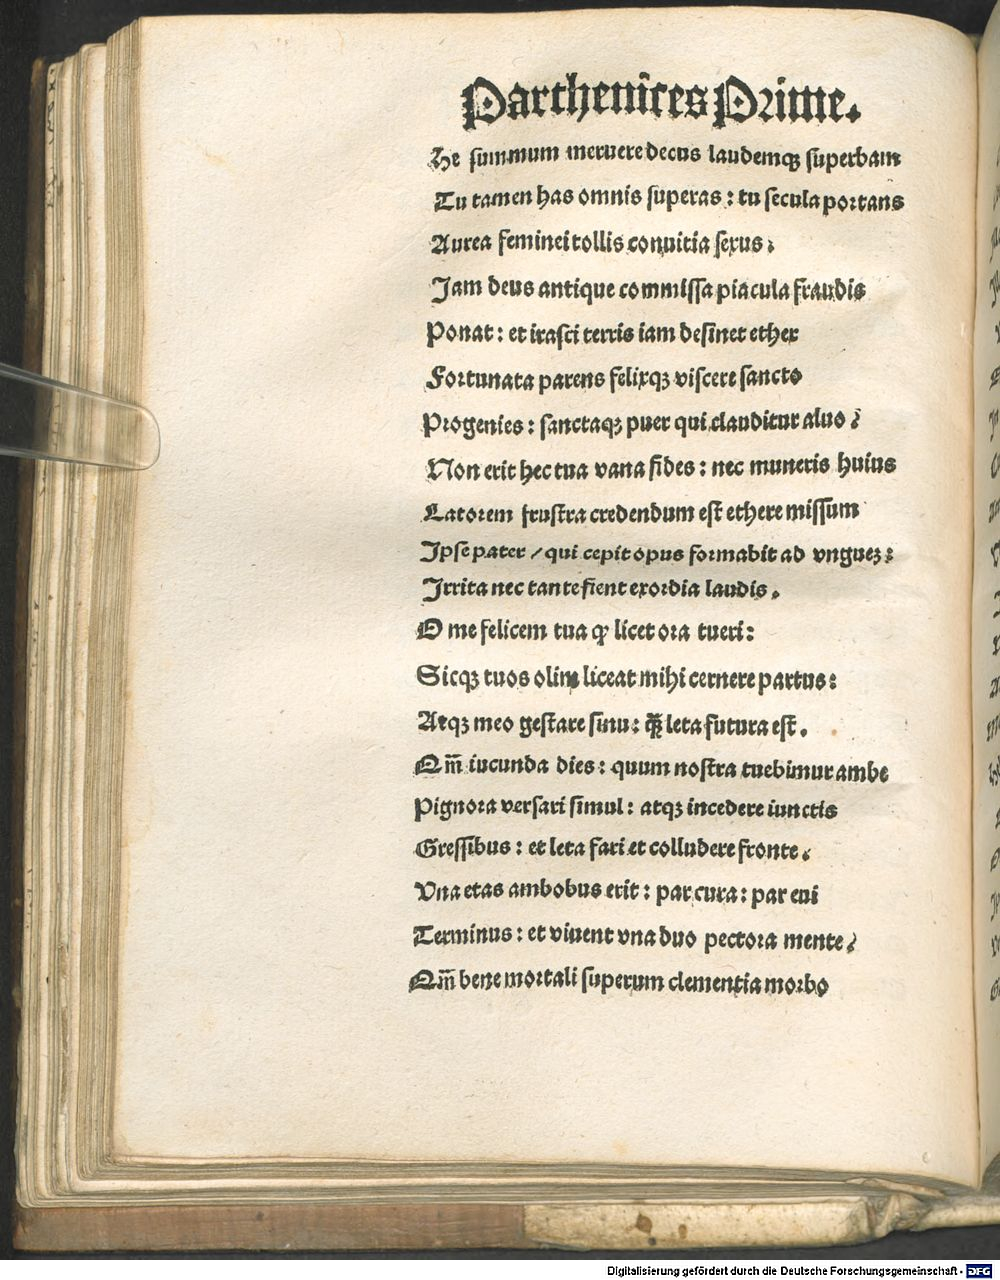 Parthenices Prime.
He summum meruere decus laudemqꝫ superbam
Tu tamen has omnis superas : tu secula portans
Aurea feminei tollis conuitia sexus ;
Jam deus antique commissa piacula fraudis
Ponat : et irasci terris iam desinet ether
Fortunata parens felixqꝫ viscere sancto
Progenies : sanctaqꝫ puer qui clauditur aluo ;
Non erit hec tua vana fides : nec muneris huius
Latorem frustra credendum est ethere missum
Ipse pater / qui cepit opus formabit ad vnguez :
Irrita nec tante fient exordia laudis .
O me felicem tua qꝫ licet ora tueri :
Sicqꝫ tuos olim liceat mihi cernere partus :
Atqꝫ meo gestare sinu : q̃ꝫ leta futura est .
Qm̃ iucunda dies : quum nostra tuebimur ambe
Pignora versari simul : atqꝫ incedere iunctis
Gressibus : et leta fari et colludere fronte ;
Vna etas ambobus erit : par cura : par eui
Terminus : et viuent vna duo pectora mente ;
Qm̃ bene mortali superum clementia morbo
Digitalisierung gefördert durch die Deutsche Forschungsgemeinschaft - DFG